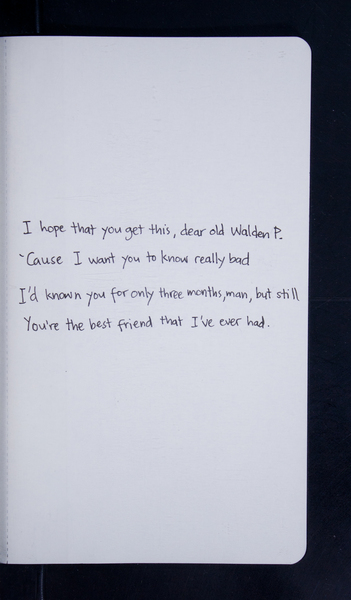 I hope that you get this, dear old Walden P.
`Cause I want you to know really bad
I'd known you for only three months, man, but still
You're the best friend that I've ever had.